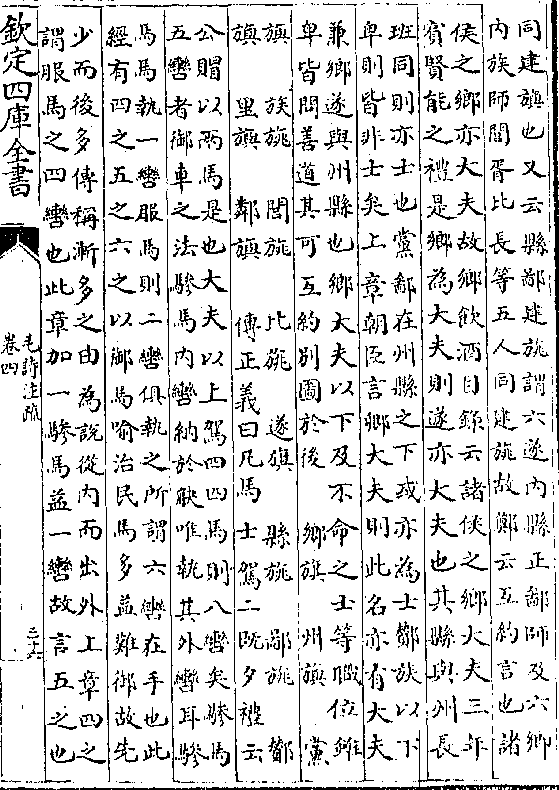 同建旗也又云縣鄙建旐謂六遂內縣正鄙師及六鄉
內族師閭胥比長等五人同建旐故鄭云互約言也諸
侯之鄉亦大夫故鄉飲酒目錄云諸侯之鄉大夫三年
賓賢能之禮是鄉為大夫則遂亦大夫也其縣與州長
班同則亦士也黨鄙在州縣之下或亦為士酇族以下
卑則皆非士矣上章朝臣言卿大夫則此名亦有大夫
兼鄉遂與州縣也鄉大夫以下及不命之士等職位雖
卑皆問善道其可互約別圖於後　鄉旗　州旗　黨
旗　族旐　閭旐　比旐　遂旗　縣旐　鄙旐　酇
旟　里旟　鄰旟　傳正義曰凡馬士駕二既夕禮云
公賵以兩馬是也大夫以上駕四四馬則八轡矣驂馬
五轡者御車之法驂馬內轡納於觖唯執其外轡耳驂
馬馬執一轡服馬則二轡俱執之所謂六轡在手也此
經有四之五之六之以御馬喻治民馬多益難御故先
少而後多傳稱漸多之由為說從內而出外上章四之
謂服馬之四轡也此章加一驂馬益一轡故言五之也
欽定四庫全書
毛詩注疏
卷四
三十六